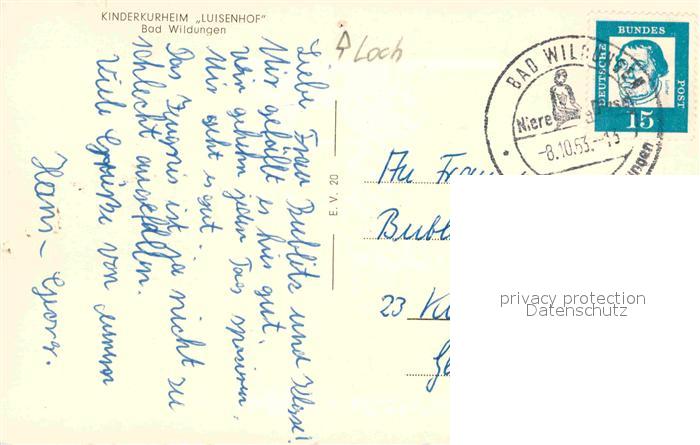 KINDERKURHEIM „LUISENHOF"
Bad Wildungen
Liebe Frau Bublitz und Klasse!
Mir gefällt es hir gut.
Wir gehen jeden Tag spaziren.
Mir geht es gut.
Das Zeugnis ist ja nicht zu
schlecht ausgefallen.
Viele Grüße von eurem
Hans-Georg.
Loch
E.V. 20
BAD WILDUNGEN
Niere
-8.10.63.-13
ungen
DEUTSCHE BUNDES POST
15
An Frau
Bubl
23 Ki
privacy protection
Datenschutz